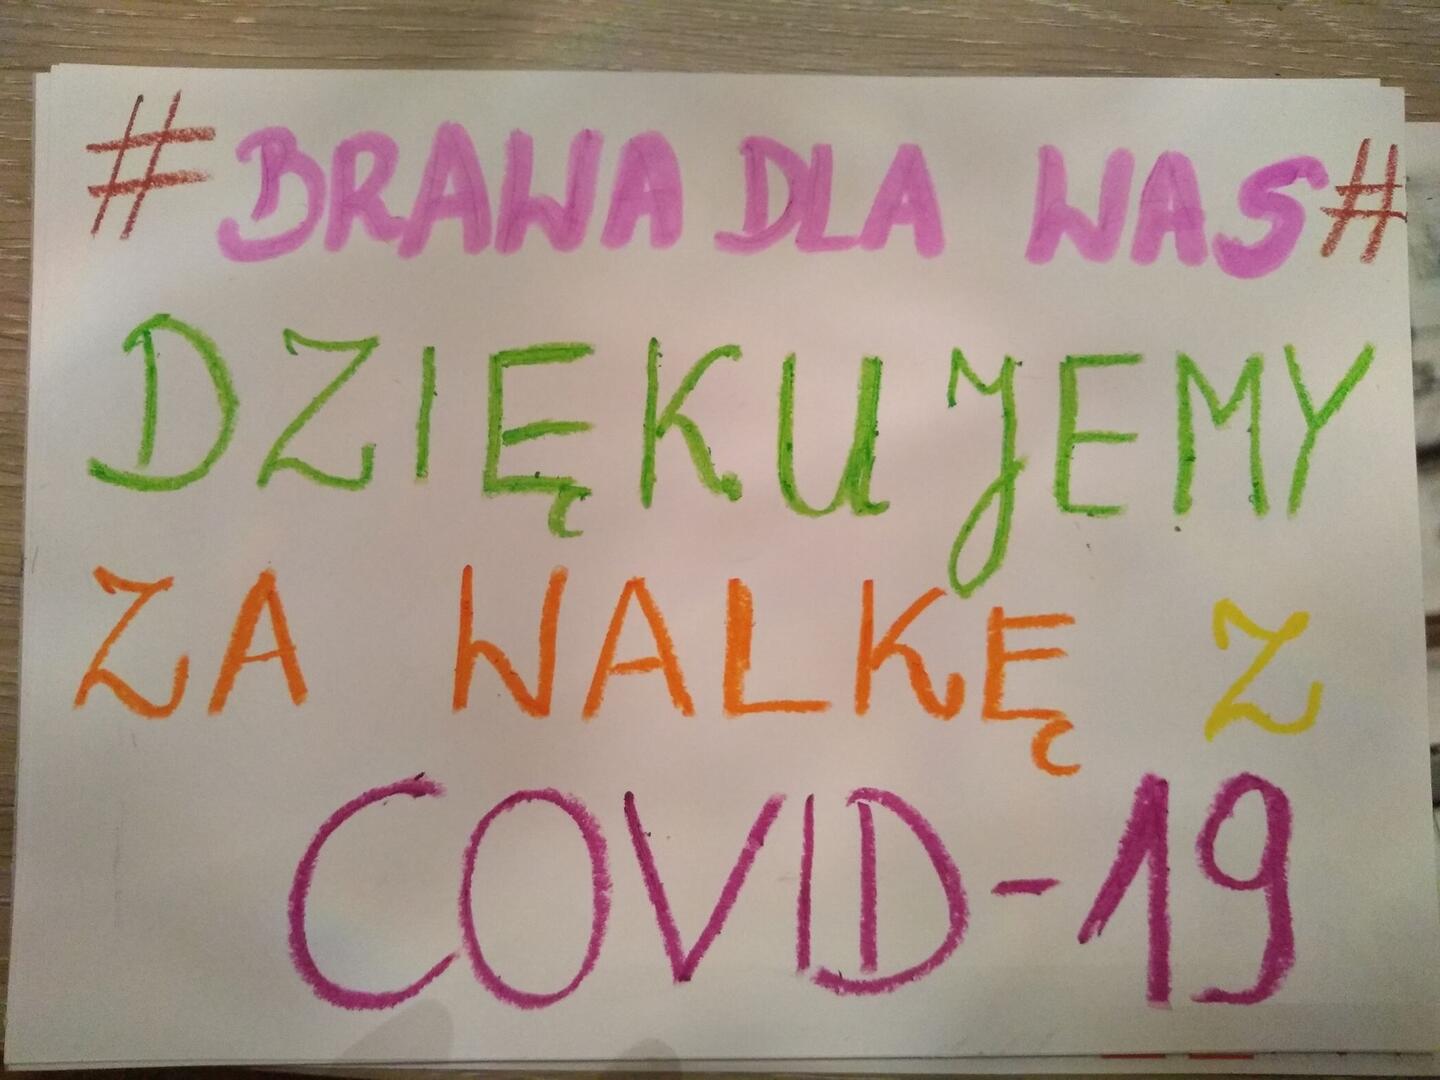 #BRAWA DLA WAS#
DZIĘKUJEMY
ZA WALKĘ Z
COVID-19